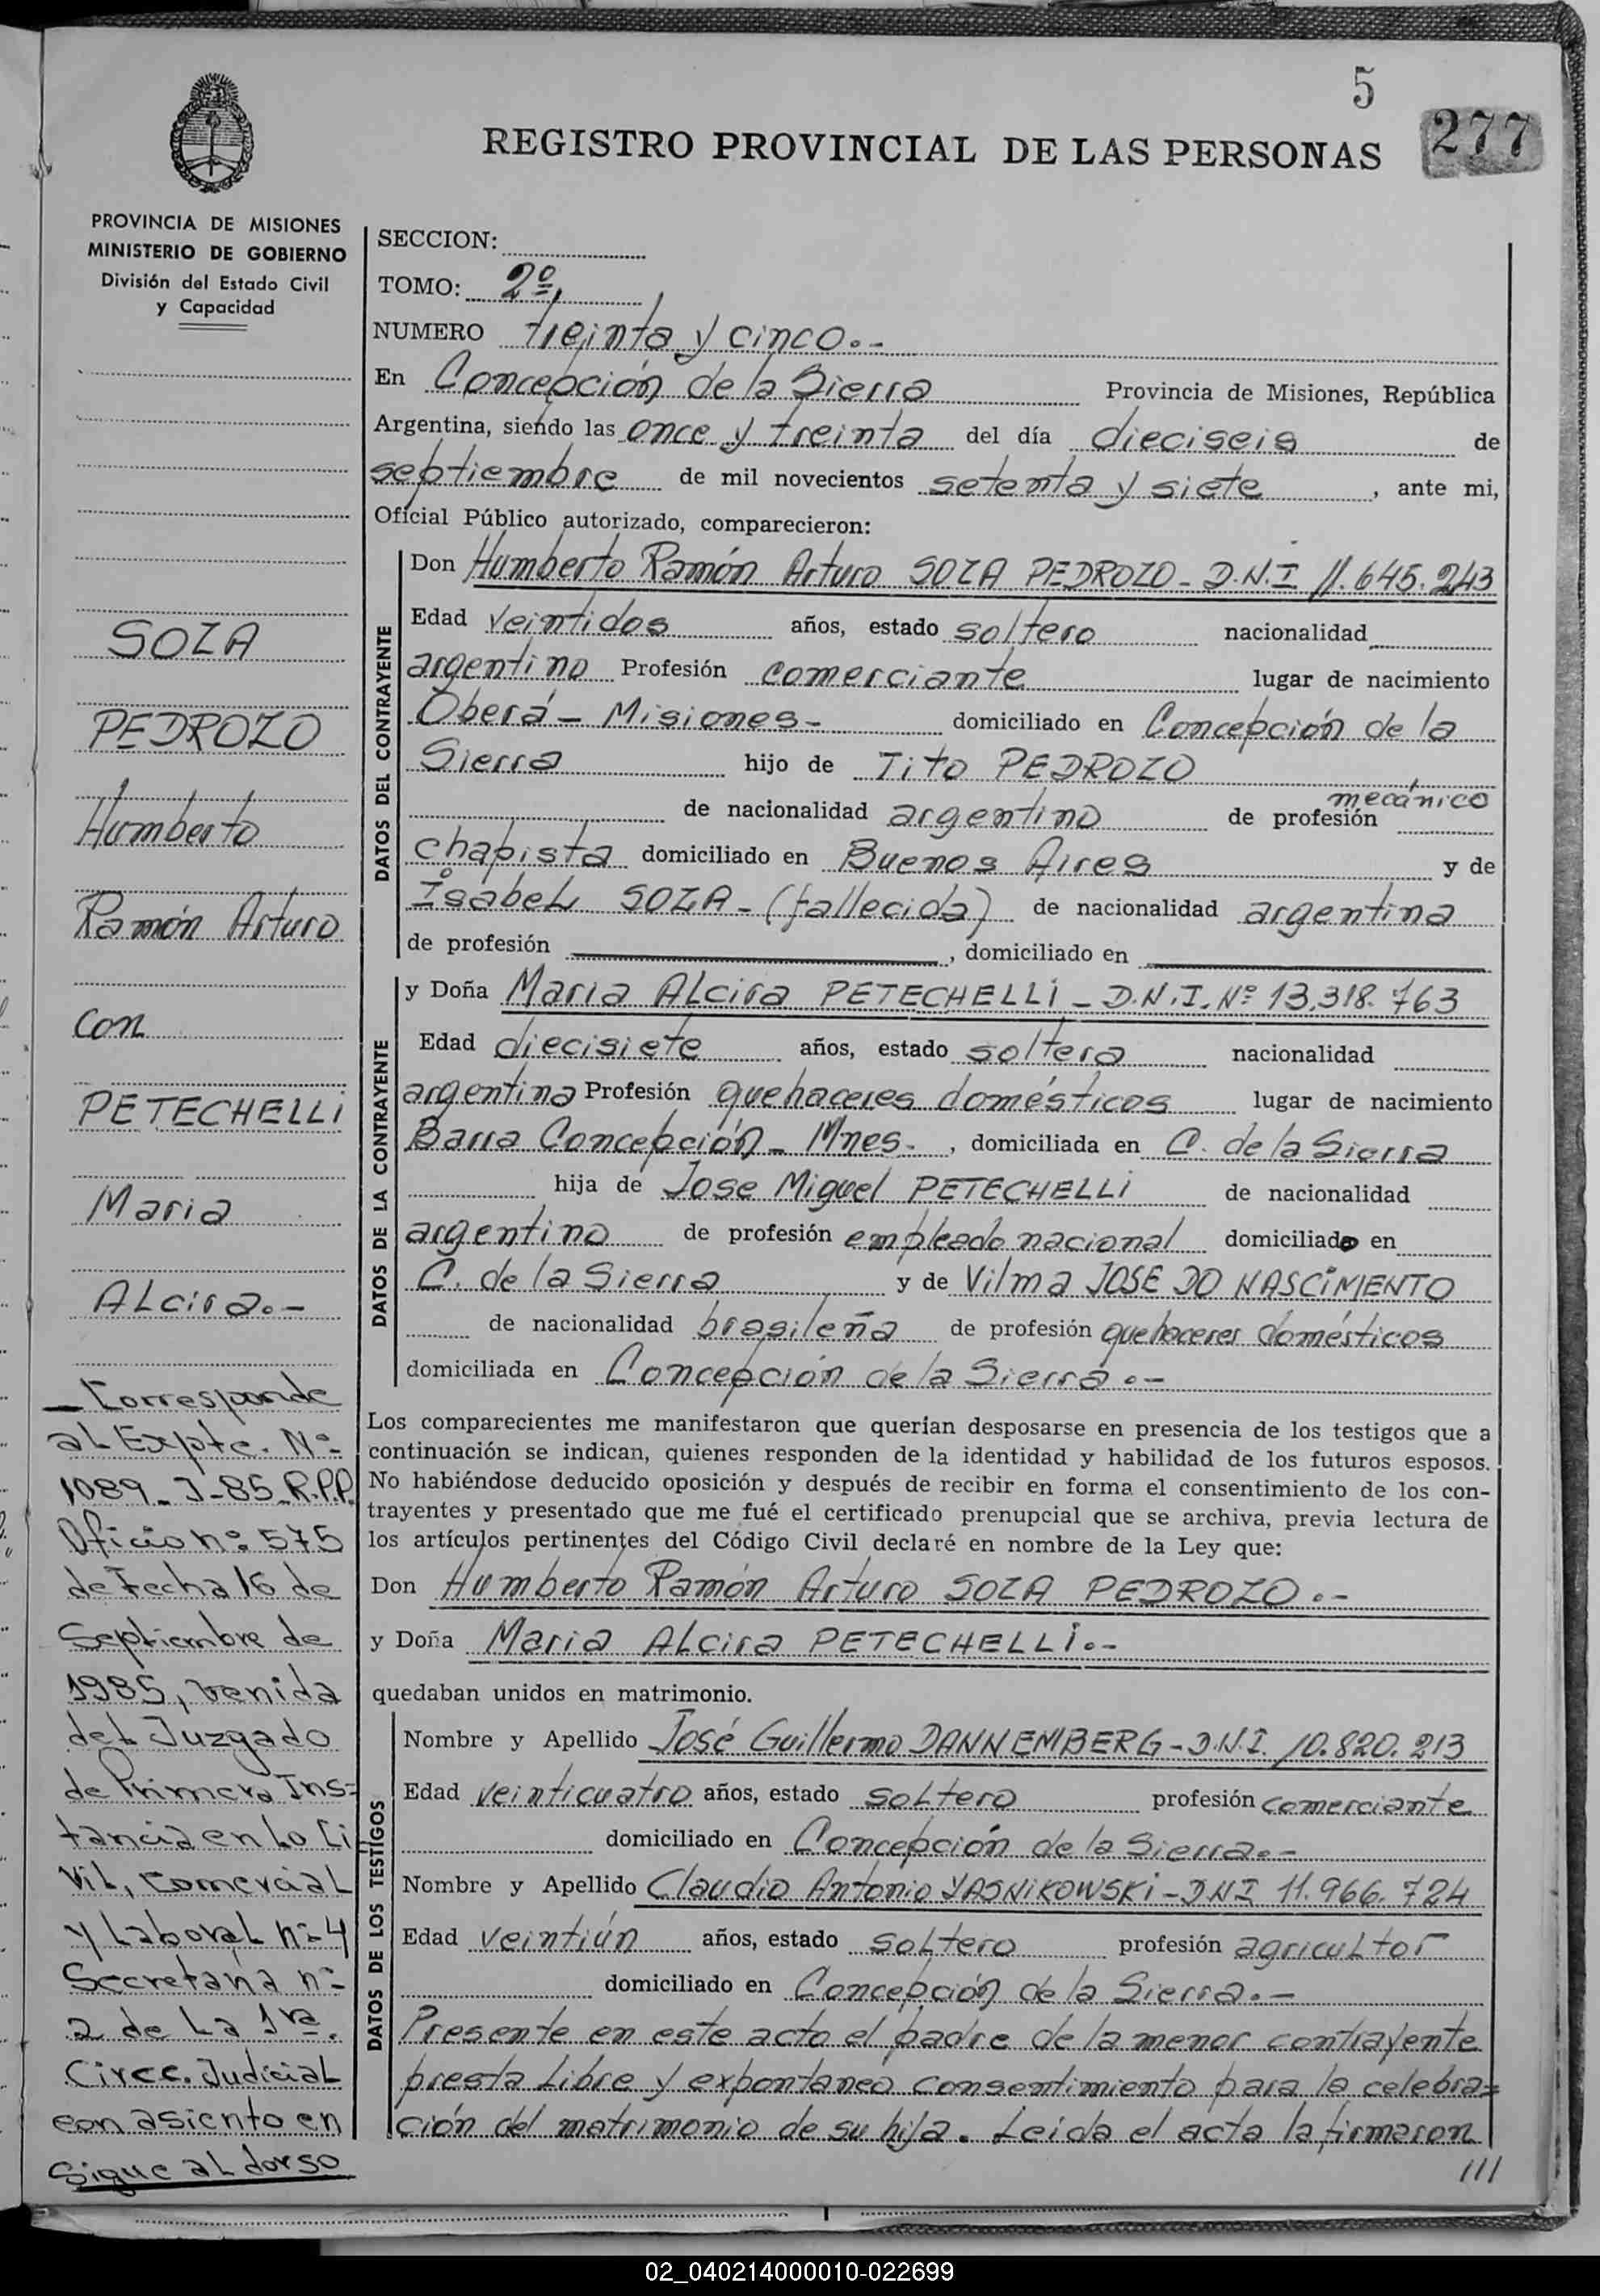 5
277
REGISTRO PROVINCIAL DE LAS PERSONAS
PROVINCIA DE MISIONES
MINISTERIO DE GOBIERNO
División del Estado Civil
y Capacidad
SOZA
PEDROZO
Humberto
Ramón Arturo
con
PETECHELLI
Maria
Alcira.-
- Corresponde
al Expte. Nº
1089-J-85-R.P.P.
Oficio nº 575
de Fecha 16 de
Septiembre de
1985, venida
del Juzgado
de Primera Ins=
tancia en Lo Ci
vil, Comercial
y Laboral nº 4
Secretaría nº
2 de La 1ra.
Circc. Judicial
con asiento en
Sigue al dorso
SECCION:
TOMO: 2º
NUMERO treinta y cinco.-
En Concepción de la Sierra Provincia de Misiones, República
Argentina, siendo las once y treinta del día dieciseis de
septiembre de mil novecientos setenta y siete, ante mi,
Oficial Público autorizado, comparecieron:
DATOS DEL CONTRAYENTE
Don Humberto Ramón Arturo SOZA PEDROZO - D.N.I 11.645.243
Edad veintidos años, estado soltero nacionalidad
argentino Profesión comerciante lugar de nacimiento
Oberá - Misiones - domiciliado en Concepción de la
Sierra hijo de Tito PEDROZO
de nacionalidad argentino de profesión mecánico
chapista domiciliado en Buenos Aires y de
Isabel SOZA - (fallecida) de nacionalidad argentina
de profesión , domiciliado en
DATOS DE LA CONTRAYENTE
y Doña Maria Alcira PETECHELLI - D.N.I. Nº 13.318.763
Edad diecisiete años, estado soltera nacionalidad
argentina Profesión quehaceres domésticos lugar de nacimiento
Barra Concepción - Mnes. , domiciliada en C. de la Sierra
hija de Jose Miguel PETECHELLI de nacionalidad
argentino de profesión empleado nacional domiciliado en
C. de la Sierra y de Vilma JOSE DO NASCIMENTO
de nacionalidad brasileña de profesión quehaceres domésticos
domiciliada en Concepción de la Sierra.-
Los comparecientes me manifestaron que querían desposarse en presencia de los testigos que a
continuación se indican, quienes responden de la identidad y habilidad de los futuros esposos.
No habiéndose deducido oposición y después de recibir en forma el consentimiento de los con-
trayentes y presentado que me fué el certificado prenupcial que se archiva, previa lectura de
los artículos pertinentes del Código Civil declaré en nombre de la Ley que:
Don Humberto Ramón Arturo SOZA PEDROZO.-
y Doña Maria Alcira PETECHELLI.-
quedaban unidos en matrimonio.
DATOS DE LOS TESTIGOS
Nombre y Apellido José Guillermo DANNEMBERG - D.N.I. 10.820.213
Edad veinticuatro años, estado soltero profesión comerciante
domiciliado en Concepción de la Sierra.-
Nombre y Apellido Claudio Antonio YASNIKOWSKI - DNI 11.966.724
Edad veintiún años, estado soltero profesión agricultor
domiciliado en Concepción de la Sierra.-
Presente en este acto el padre de la menor contrayente
presta libre y expontaneo consentimiento para la celebra=
ción del matrimonio de su hija. Leida el acta la firmaron
///
02_040214000010-022699